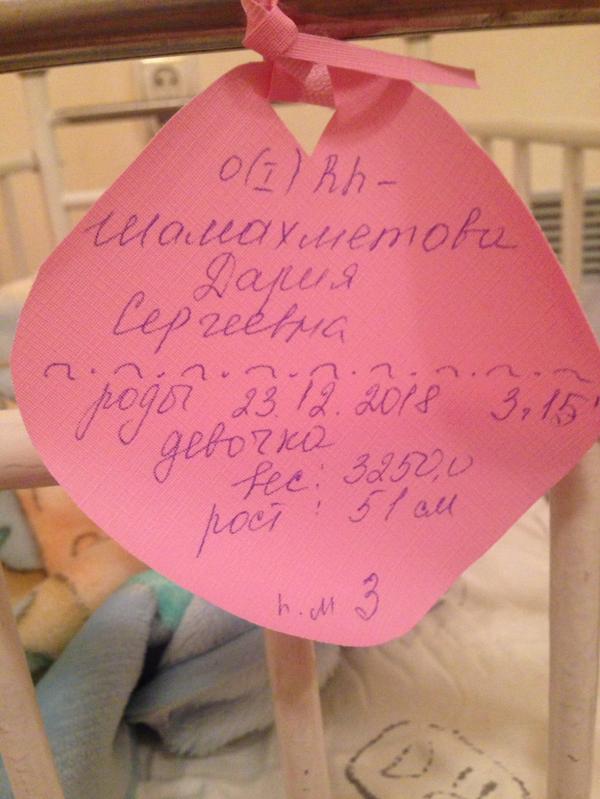 O(I) Rh-
Шамахметова
Дария
Сергеевна
роды 23.12.2018 3,15
девочка
вес: 3250,0
рост: 51 см
п.м 3